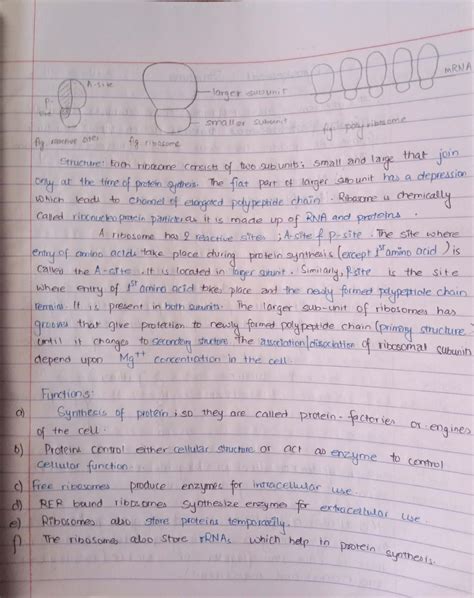 A-site
P-site
larger subunit
smaller subunit
mRNA
fig. reactive sites
fig. ribosome
fig. polyribosome
Structure: Each ribosome consists of two subunits; small and large that join
only at the time of protein synthesis. The flat part of larger subunit has a depression
which leads to channel of elongated polypeptide chain. Ribosome is chemically
called ribonucleoprotein particle as it is made up of RNA and proteins.
A ribosome has 2 reactive sites; A-site & P-site. The site where
entry of amino acids take place during protein synthesis (except 1st amino acid) is
called the A-site. It is located in larger subunit. Similarly, P-site is the site
where entry of 1st amino acid takes place and the newly formed polypeptide chain
remains. It is present in both subunits. The larger sub-unit of ribosomes has
grooves that give protection to newly formed polypeptide chain (primary structure
until it changes to secondary structure. The association/dissociation of ribosomal subunits
depend upon Mg++ concentration in the cell.
Functions:
a) Synthesis of protein; so they are called protein-factories or engines
of the cell.
b) Proteins control either cellular structure or act as enzyme to control
cellular function.
c) Free ribosomes produce enzymes for intracellular use.
d) RER bound ribosomes synthesize enzymes for extracellular use.
e) Ribosomes also store proteins temporarily.
f) The ribosomes also store rRNAs which help in protein synthesis.